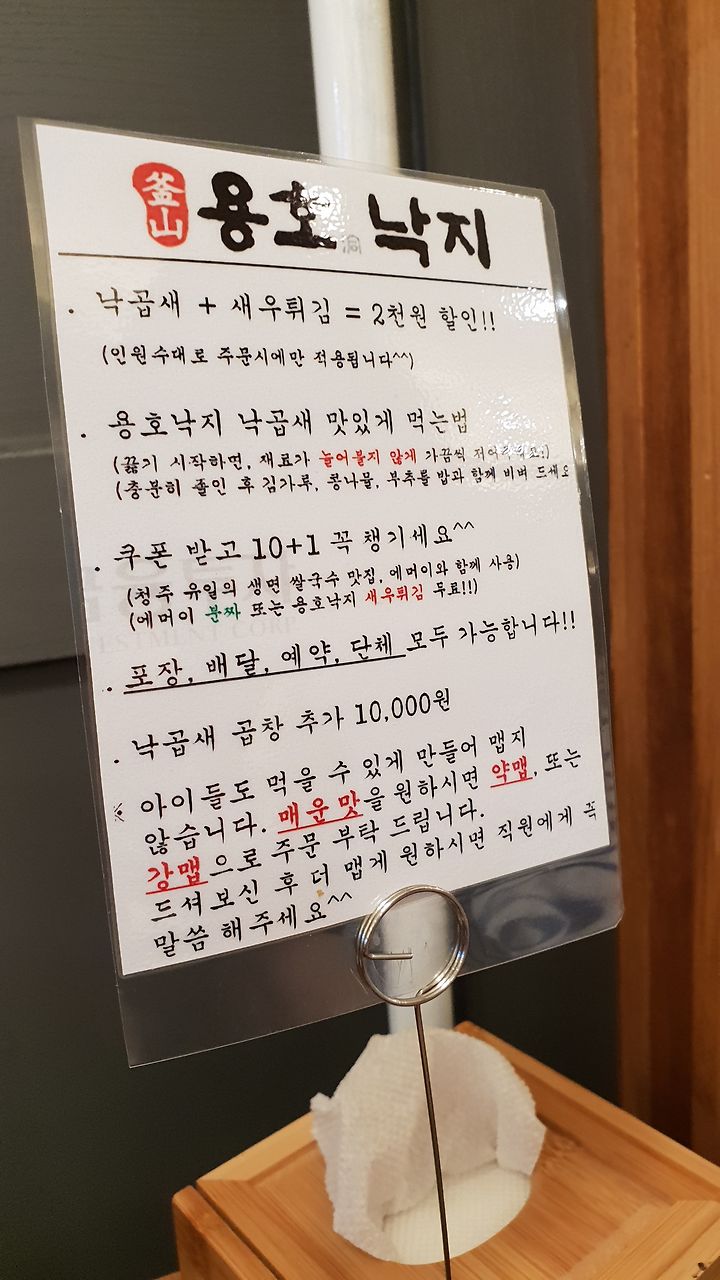 釜山 용호洞 낙지
. 낙곱새 + 새우튀김 = 2천원 할인!!
(인원수대로 주문시에만 적용됩니다^^)
. 용호낙지 낙곱새 맛있게 먹는법
(끓기 시작하면, 재료가 눌어붙지 않게 가끔씩
(충분히 졸인 후 김가루, 콩나물, 부추를 밥과 함께 비벼 드세요
. 쿠폰 받고 10+1 꼭 챙기세요^^
(청주 유일의 생면 쌀국수 맛집, 에머이와 함께 사용)
(에머이 분짜 또는 용호낙지 새우튀김 무료!!)
. 포장, 배달, 예약, 단체 모두 가능합니다!!
. 낙곱새 곱창 추가 10,000원
※ 아이들도 먹을 수 있게 만들어 맵지
않습니다. 매운맛을 원하시면 약맵, 또는
강맵으로 주문 부탁 드립니다.
드셔보신 후 더 맵게 원하시면 직원에게 꼭
말씀 해주세요^^